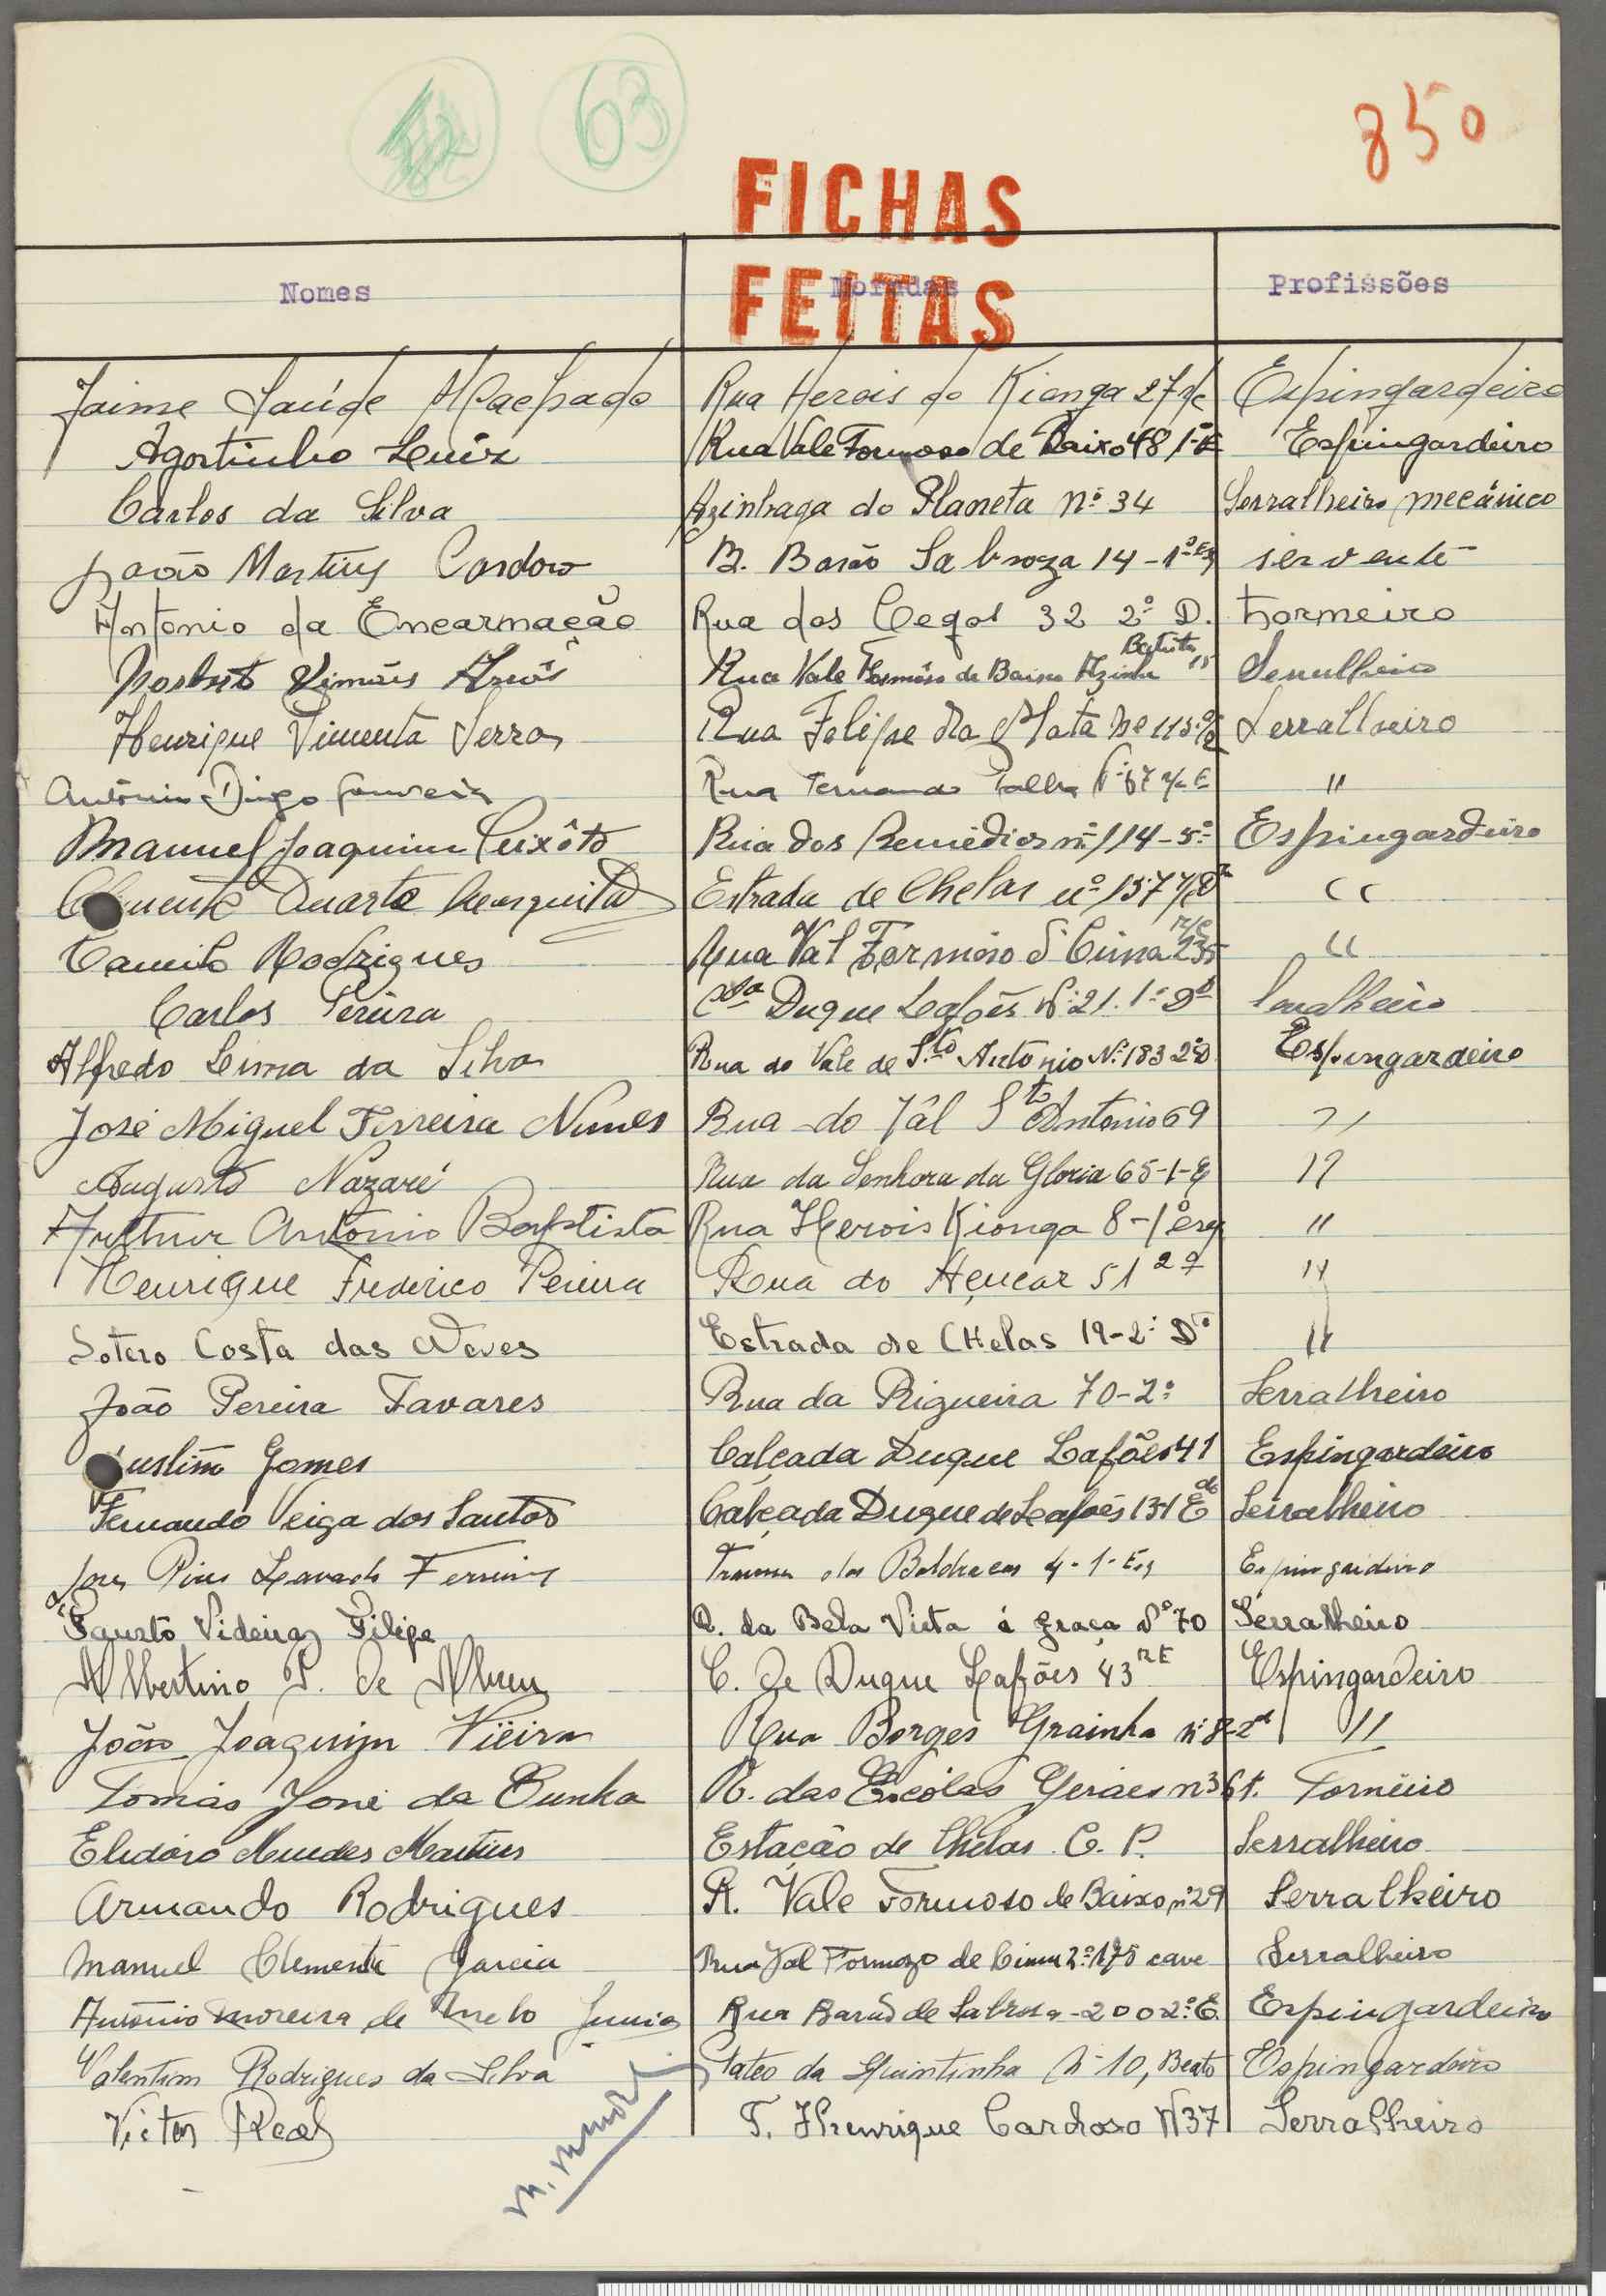 63
850
FICHAS
FEITAS
Nomes Moradas Profissões
Jaime Saúde Machado Rua Herois de Kionga 27 Espingardeiro
Agostinho Luiz Rua Vale Formoso de Baixo 48 1º E Espingardeiro
Carlos da Silva Azinhaga do Planeta nº 34 Serralheiro mecânico
João Martins Cardoso B. Barão Sabroza 14-1º Esq servente
Antonio da Encarnação Rua dos Cegos 32 2º D. torneiro
Rua Vale Formôso de Baixo Azinha Batista 15 Serralheiro
Henrique Pimenta Serra Rua Felipe da Mata nº 113 Serralheiro
António Diogo Gouveia Rua Fernando Palha Nº 67 r/c E "
Manuel Joaquim Peixôto Rua dos Remédios nº 114-3º Espingardeiro
Duarte Mesquita Estrada de Chelas nº 157 r/c Dº "
Camilo Rodrigues Rua Val Formoso d Cima 235 r/c "
Carlos Pereira Cda Duque Lafões Nº 21. 1º Dº Serralheiro
Alfredo Lima da Silva Rua do Vale de Sto António Nº 183 2º D. Espingardeiro
José Miguel Ferreira Nunes Rua do Vâl Sto Antonio 69 "
Augusto Nazaré Rua da Senhora da Gloria 65-1-E "
Arthur Antonio Baptista Rua Herois Kionga 8-1º esq "
Henrique Frederico Pereira Rua do Açucar 51 2º "
Sotero Costa das Neves Estrada de Chelas 19-2º Dº "
João Pereira Tavares Rua da Rigueira 70-2º Serralheiro
Gomes Calçada Duque Lafões 41 Espingardeiro
Fernando Veiga dos Santos Calçada Duque de Lafões 131 E Serralheiro
Pires Lavado Ferreira 4-1-Esq Espingardeiro
Fausto Videira Filipe R. da Bela Vista á graça Nº 70 Serralheiro
Albertino P. de Abreu C. de Duque Lafões 43 R E Espingardeiro
João Joaquim Vieira Rua Borges Grainha nº 8-2º "
Tomás José da Cunha R. das Escólas Geraes nº 36 Torneiro
Elidoro Mendes Martins Estação de Chelas C. P. Serralheiro
Armando Rodrigues R. Vale Formoso de Baixo nº 29 Serralheiro
Manuel Clemente Garcia Rua Val Formozo de Cima 175 cave Serralheiro
António Moreira de Melo Junior Rua Barão de Sabrosa - 200 2º E. Espingardeiro
Valentim Rodrigues da Silva Pateo da Quintinha Nº 10, Beato Espingardeiro
Victor Real T. Henrique Cardoso Nº 37 Serralheiro